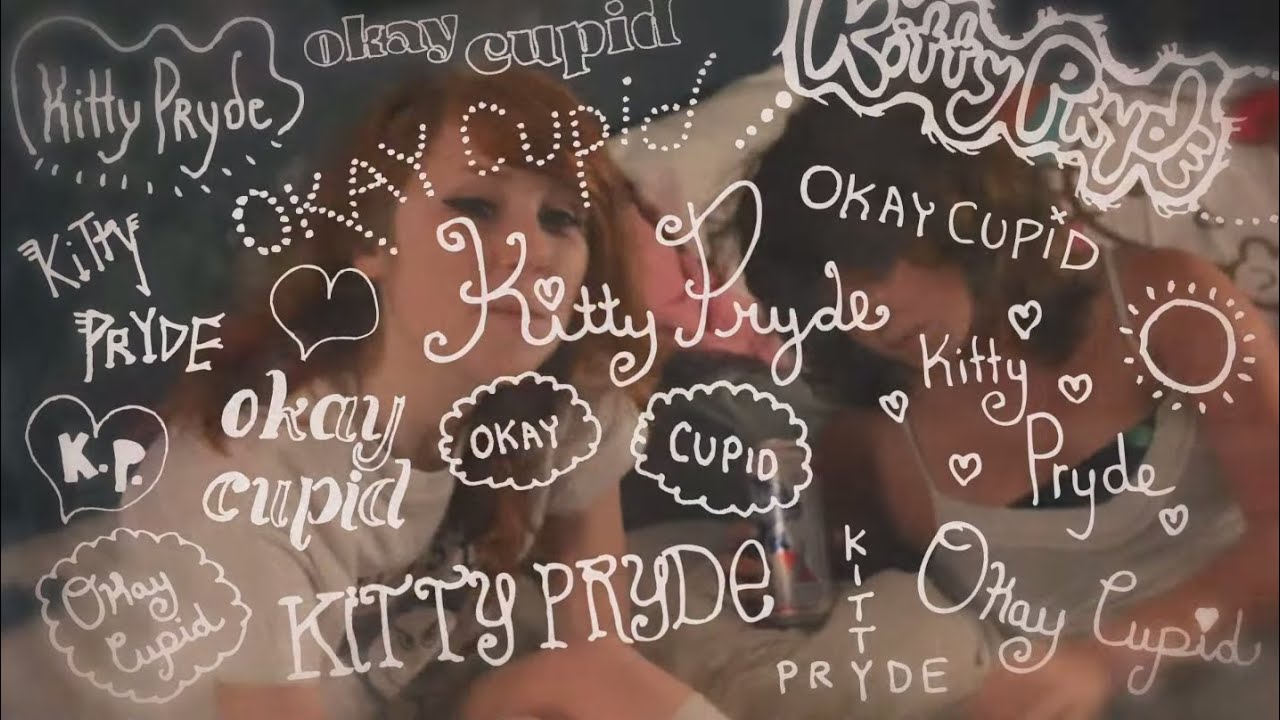 Kitty Pryde
okay cupid
Kitty Pryde
OKAY CUPID
OKAY CUPID
KiTTy
PRYDE
Kitty Pryde
Kitty
Pryde
K.P.
okay
cupid
OKAY
CUPID
Okay
Cupid
KiTTY PRYDe
KITTY
PRYDE
Okay Cupid